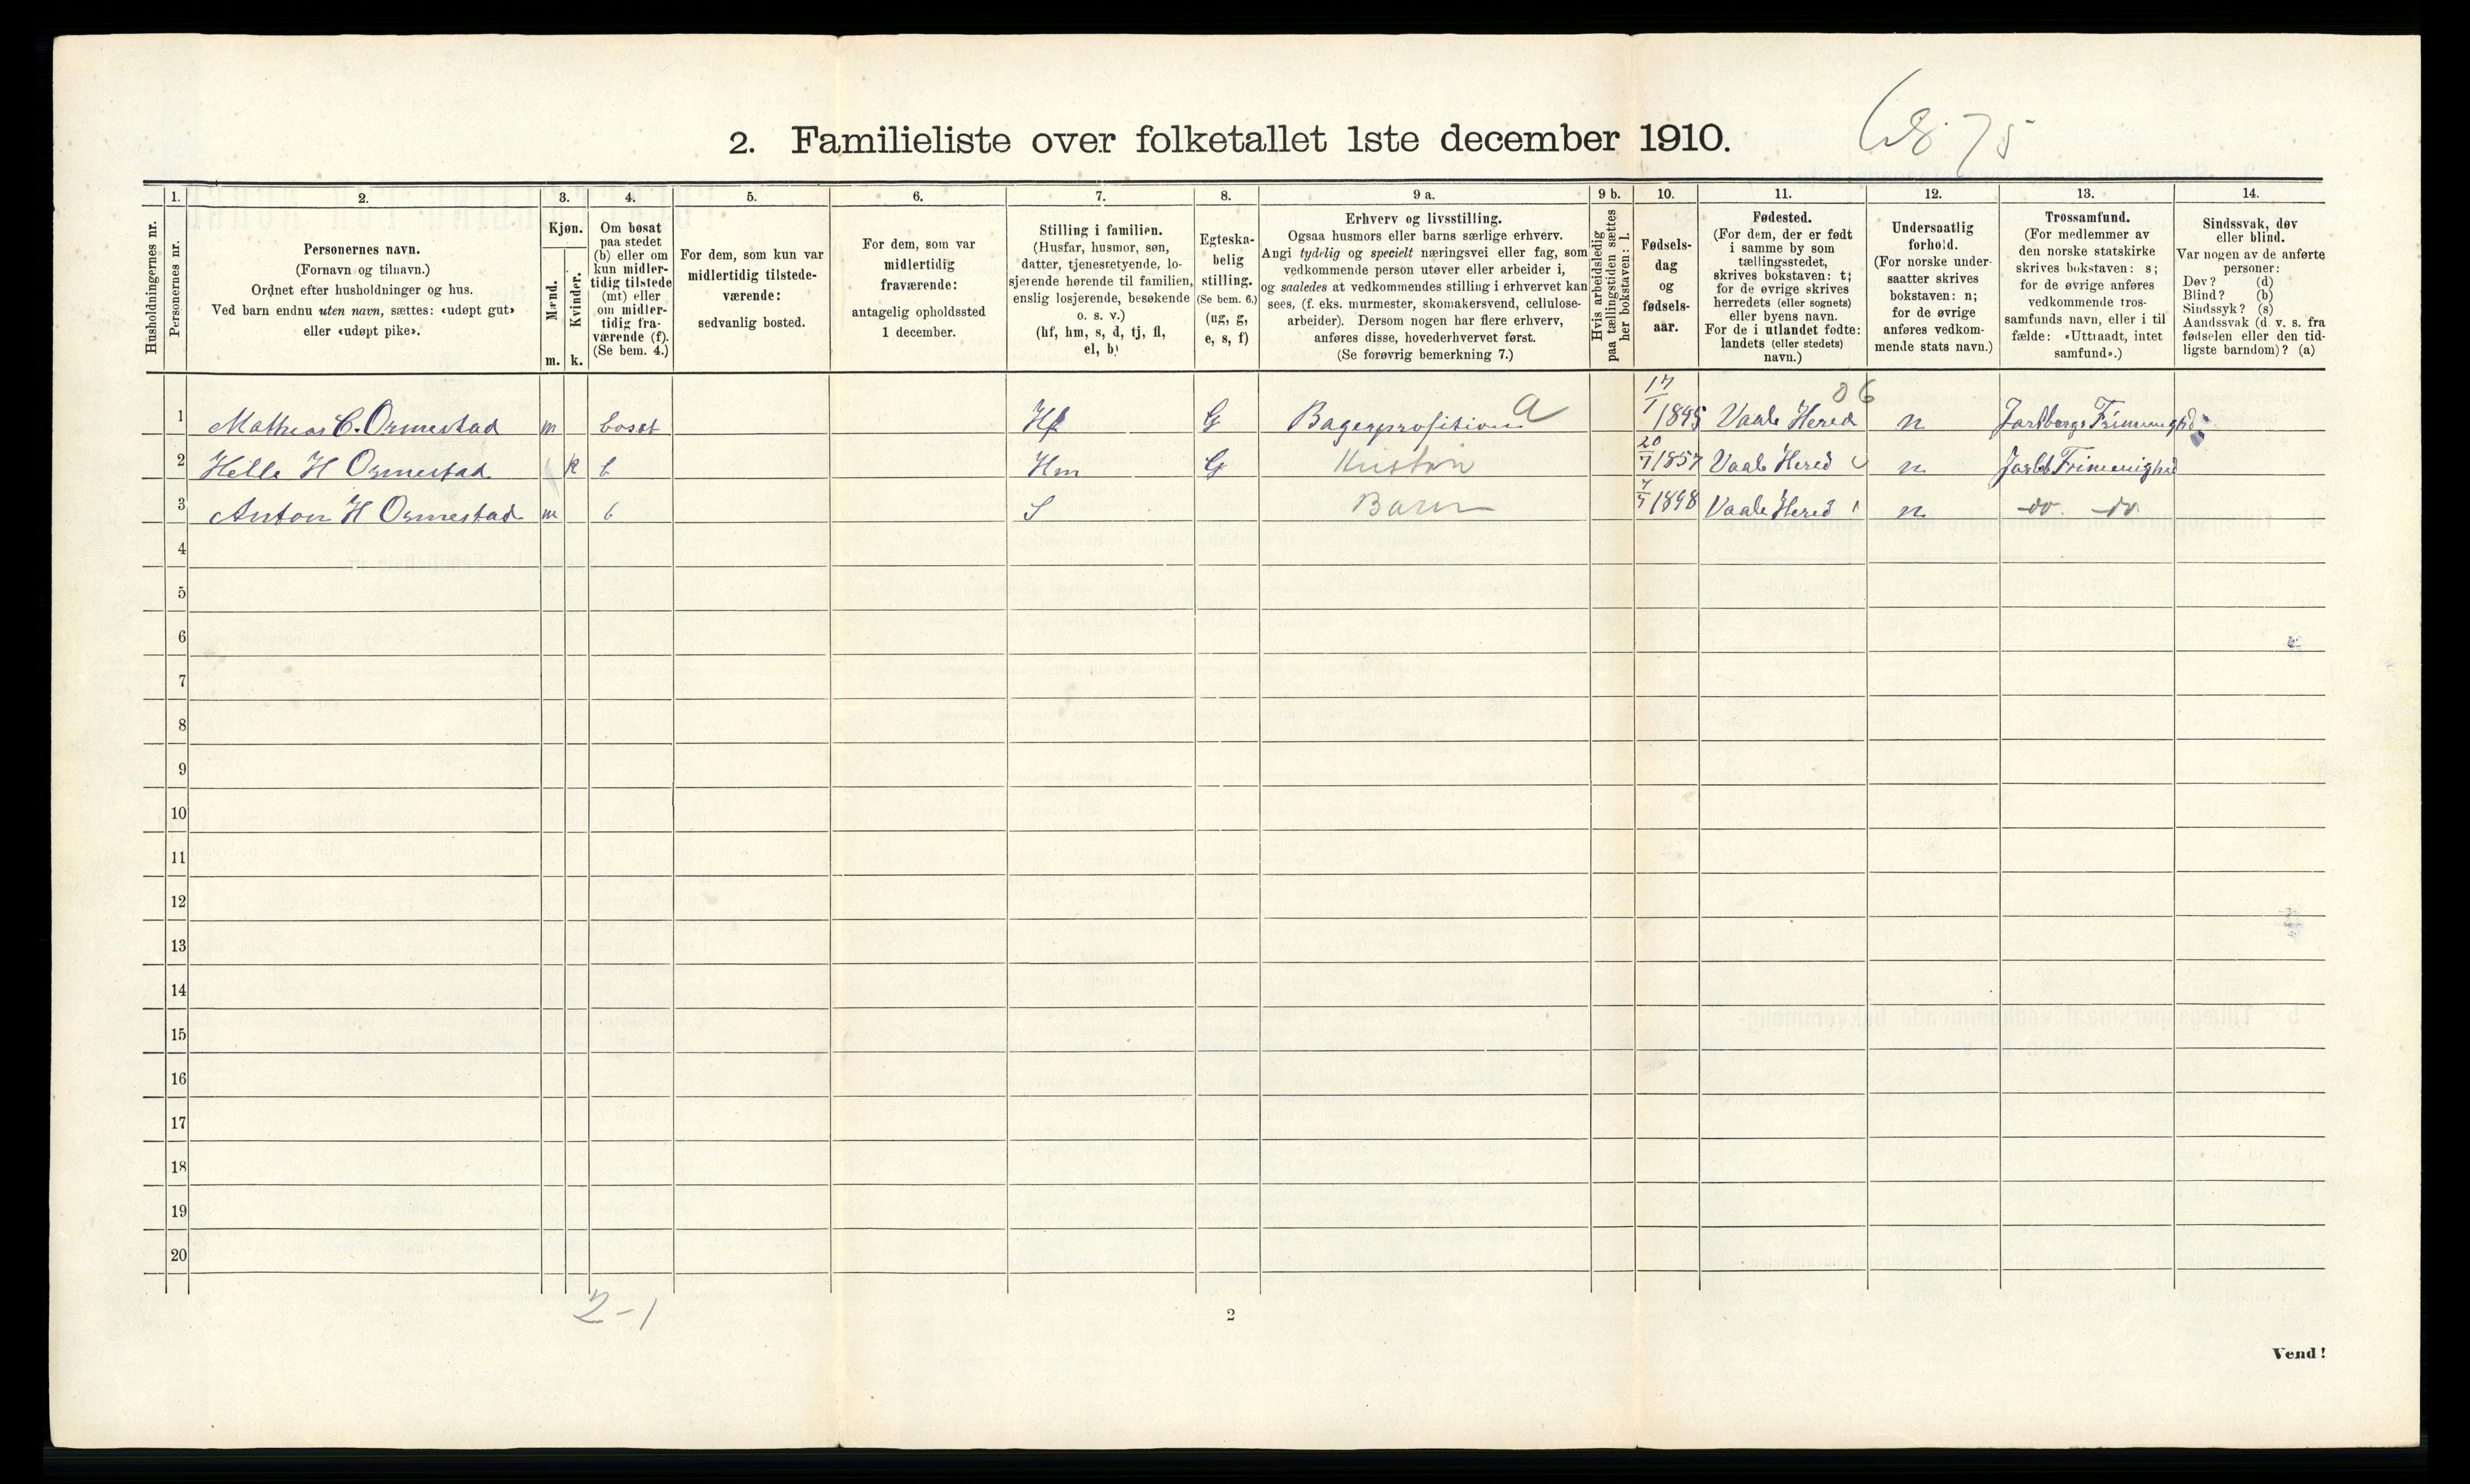 2. Familieliste over folketallet 1ste december 1910.
Husholdningernes nr.
1.
Personernes nr.
2.
Personernes navn.
(Fornavn og tilnavn.)
Ordnet efter husholdninger og hus.
Ved barn endnu uten navn, sættes: «udøpt gut»
eller «udøpt pike».
3.
Kjøn.
Mænd.
m.
Kvinder.
k.
4.
Om bosat
paa stedet
(b) eller om
kun midler-
tidig tilstede
(mt) eller
om midler-
tidig fra-
værende (f).
(Se bem. 4.)
5.
For dem, som kun var
midlertidig tilstede-
værende:
sedvanlig bosted.
6.
For dem, som var
midlertidig
fraværende:
antagelig opholdssted
1 december.
7.
Stilling i familien.
(Husfar, husmor, søn,
datter, tjenestetyende, lo-
sjerende hørende til familien,
enslig losjerende, besøkende
o. s. v.)
(hf, hm, s, d, tj, fl,
el, b)
8.
Egteska-
belig
stilling.
(Se bem. 6.)
(ug, g,
e, s, f)
9 a.
Erhverv og livsstilling.
Ogsaa husmors eller barns særlige erhverv.
Angi tydelig og specielt næringsvei eller fag, som
vedkommende person utøver eller arbeider i,
og saaledes at vedkommendes stilling i erhvervet kan
sees, (f. eks. murmester, skomakersvend, cellulose-
arbeider). Dersom nogen har flere erhverv,
anføres disse, hovederhvervet først.
(Se forøvrig bemerkning 7.)
9 b.
Hvis arbeidsledig
paa tællingstiden sættes
her bokstaven: l.
10.
Fødsels-
dag
og
fødsels-
aar.
11.
Fødested.
(For dem, der er født
i samme by som
tællingsstedet,
skrives bokstaven: t;
for de øvrige skrives
herredets (eller sognets)
eller byens navn.
For de i utlandet fødte:
landets (eller stedets)
navn.)
12.
Undersaatlig
forhold.
(For norske under-
saatter skrives
bokstaven: n;
for de øvrige
anføres vedkom-
mende stats navn.)
13.
Trossamfund.
(For medlemmer av
den norske statskirke
skrives bokstaven: s;
for de øvrige anføres
vedkommende tros-
samfunds navn, eller i til
fælde: «Uttraadt, intet
samfund».)
14.
Sindssvak, døv
eller blind.
Var nogen av de anførte
personer:
Døv? (d)
Blind? (b)
Sindssyk? (s)
Aandssvak (d. v. s. fra
fødselen eller den tid-
ligste barndom)? (a)
06
1 Mathias C. Ormestad m bosat Hf G a 17/1 Vaale Hered n
2 Helle H Ormestad k b Hm G Hustru 20/7 1857 Vaale Hered n
3 Anton H Ormestad m b S Barn 7/5 1898 Vaale Hered n do do
4
5
6
7
8
9
10
11
12
13
14
15
16
17
18
19
20
2-1
2
Vend!